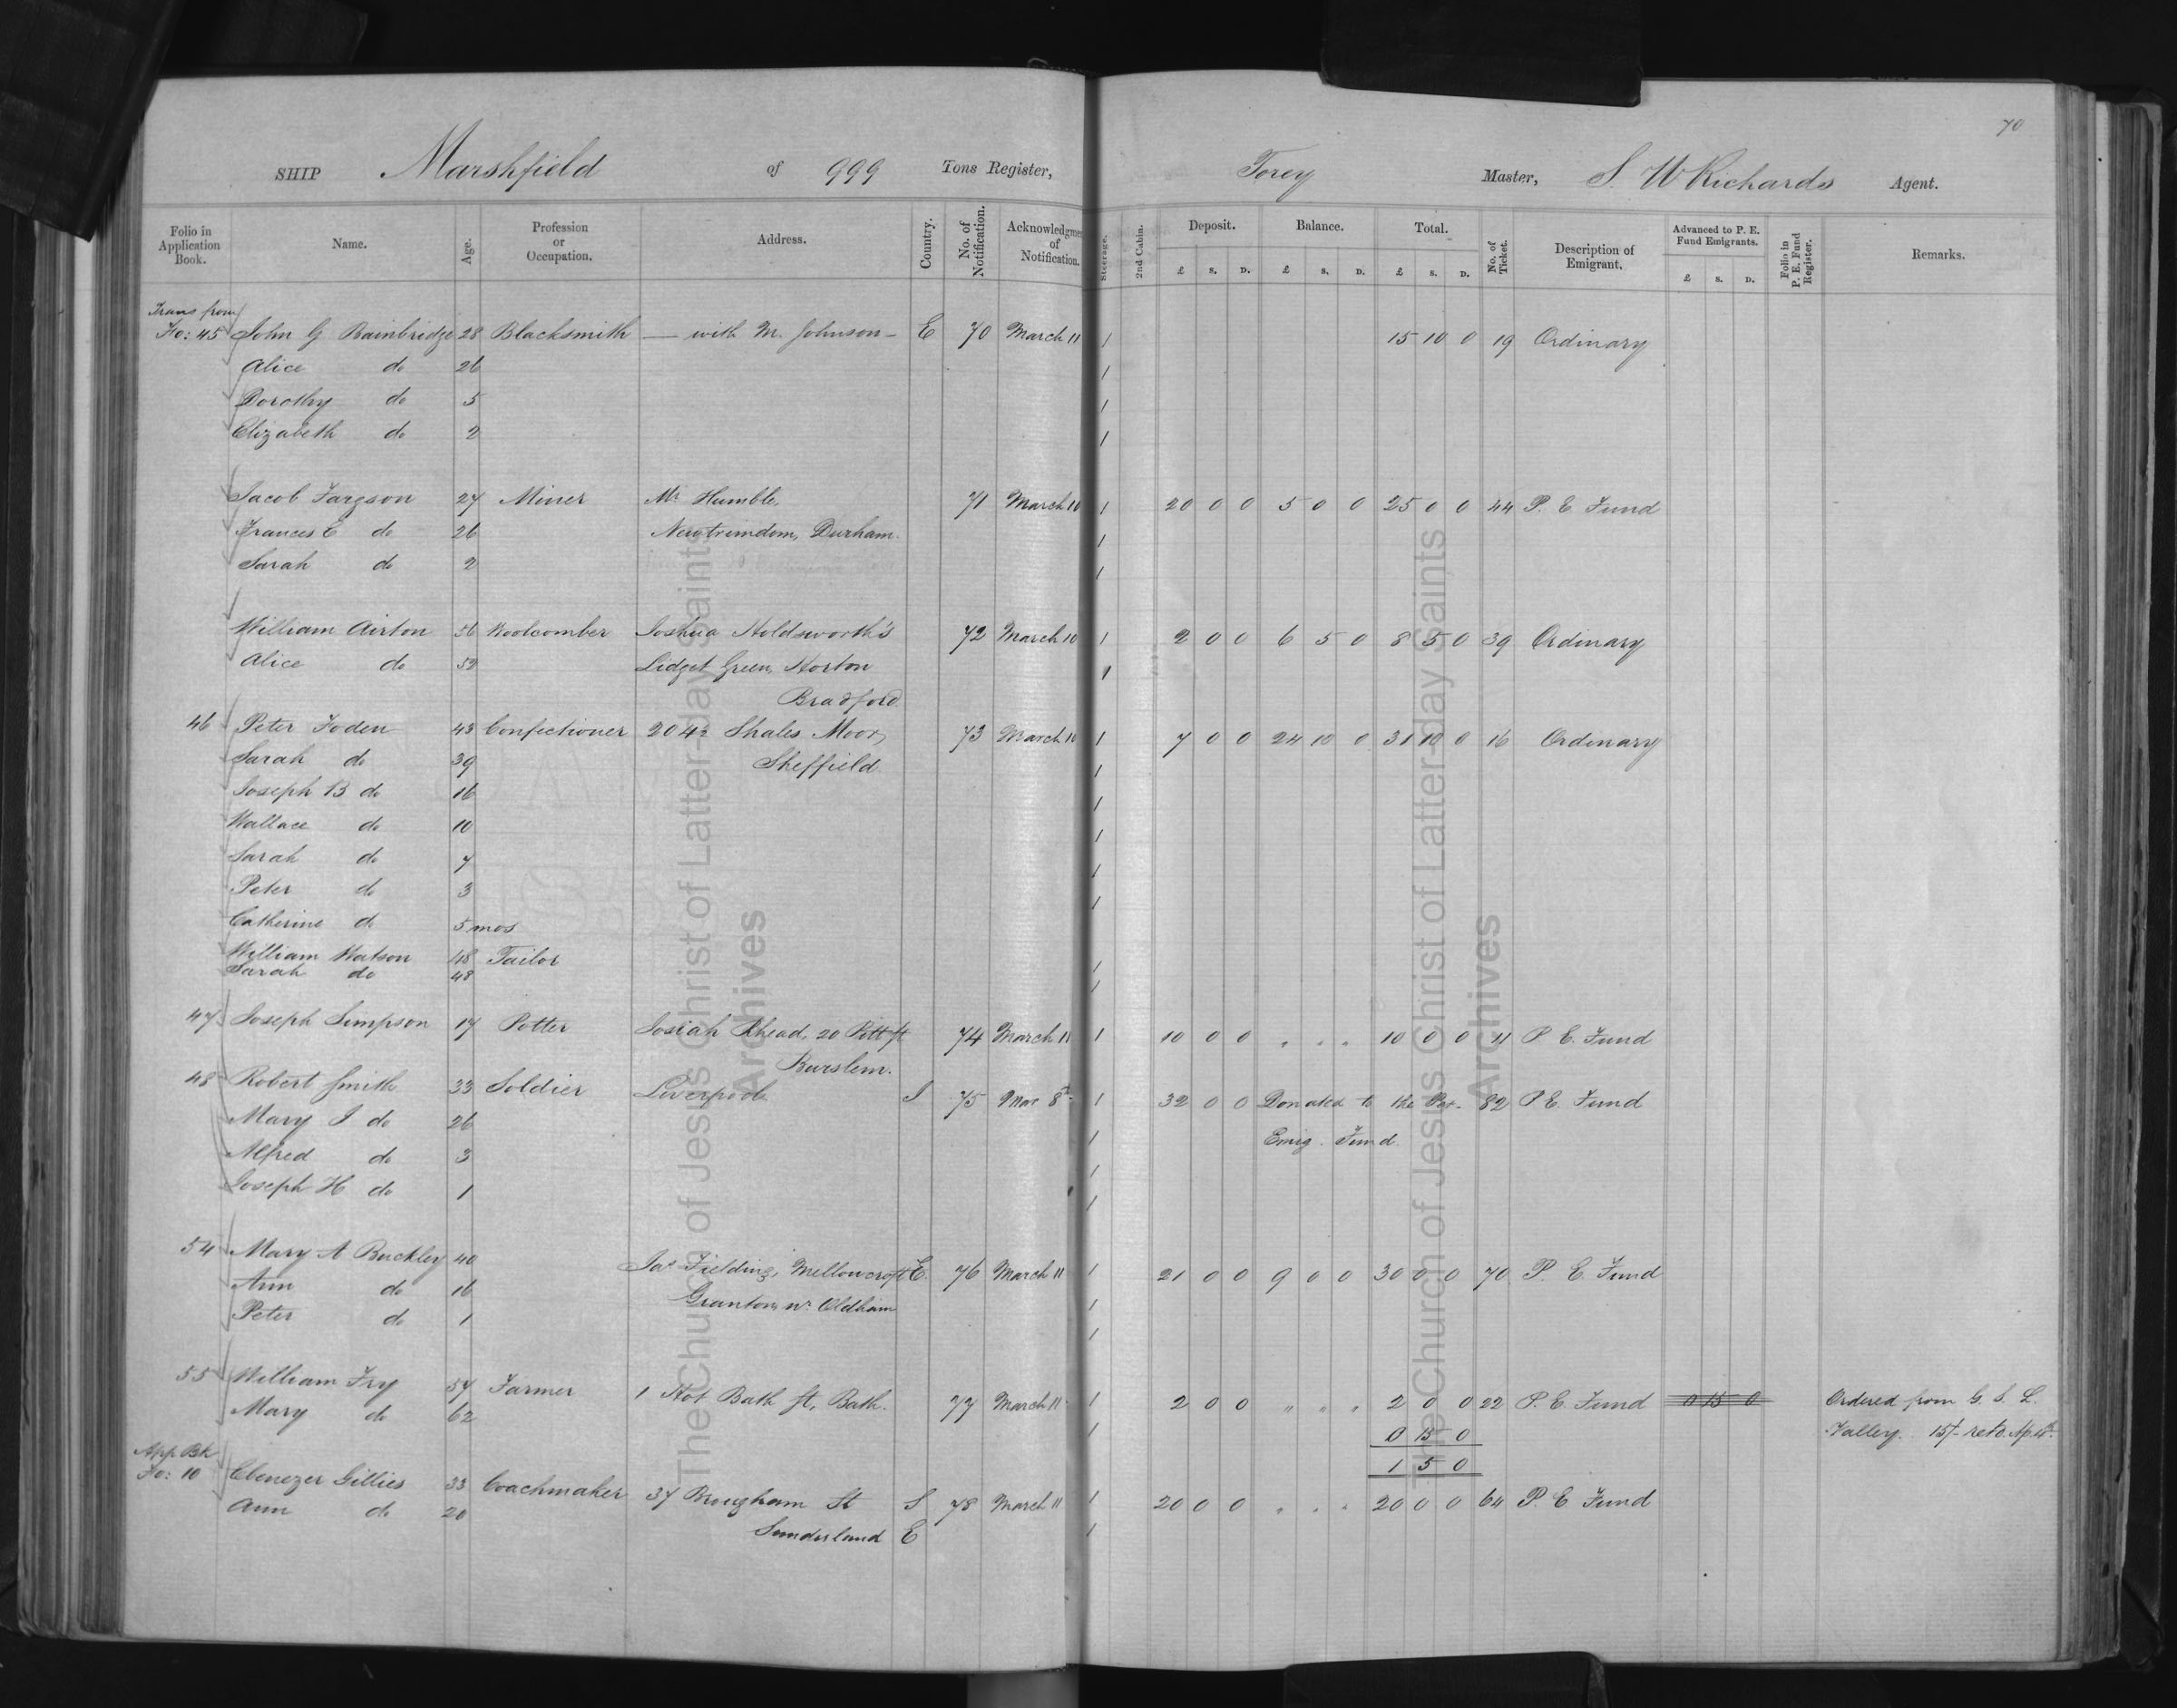 70
SHIP Marshfield of 999 Tons Register, Torey Master, S. W Richards Agent.
Folio in Application Book. Name. Age. Profession or Occupation. Address. Country. No. of Notification. Acknowledgme of Notification. Steerage. 2nd Cabin. Deposit. £ s. D. Balance. £ s. D. Total. £ s. D. No. of Ticket. Description of Emigrant. Advanced to P. E. Fund Emigrants. £ s. D. Folio in P. E. Fund Register. Remarks.
Trans from
Fo: 45 John G Bainbridge 28 Blacksmith — with M. Johnson — E 70 March 11 1 15 10 0 19 Ordinary
Alice do 26 1
Dorothy do 5 1
Elizabeth do 2 1
Jacob Fargson 27 Miner Mr Humble, 71 March 10 1 20 0 0 5 0 0 25 0 0 44 P. E Fund
Frances E do 26 Newtrimdom, Durham. 1
Sarah do 2 1
William Airton 56 Woolcomber Joshua Holdsworth's 72 March 10 1 2 0 0 6 5 0 8 5 0 39 Ordinary
Alice do 52 Lidget Green, Horton 1
Bradford
46 Peter Foden 43 Confectioner 204½ Shales Moor, 73 March 10 1 7 0 0 24 10 0 31 10 0 16 Ordinary
Sarah do 39 Sheffield 1
Joseph B do 16 1
Wallace do 10 1
Sarah do 7 1
Peter do 3 1
Catherine do 5 mos
William Watson 48 Tailor 1
Sarah do 48 1
47 Joseph Simpson 17 Potter Josiah Rhead, 20 Pitt st 74 March 11 1 10 0 0 " " " 10 0 0 11 P E. Fund
Burslem.
48 Robert Smith 33 Soldier Liverpool I 75 Mar 8th 1 32 0 0 Donated to the Per. 82 P E. Fund
Mary I do 26 1 Emig. Fund
Alfred do 3 1
Joseph H do 1 1
54 Mary A Buckley 40 Jas Fielding, Mellowcroft E. 76 March 11 1 21 0 0 9 0 0 30 0 0 70 P. E. Fund
Ann do 16 Grantom, nr Oldham 1
Peter do 1 1
55 William Fry 57 Farmer 1 Hot Bath St, Bath. 77 March 11 1 2 0 0 " " " 2 0 0 22 P. E. Fund 0 15 0 Ordered from G. S. L.
Mary do 62 1 0 15 0 Valley. 15/- retd. Ap.
App Bk 1 5 0
Fo: 10 Ebenezer Gillies 33 Coachmaker 37 Brougham St S 78 March 11 1 20 0 0 " " " 20 0 0 64 P. E Fund
Ann do 20 Sunderland E 1
The Church of Jesus Christ of Latter-day Saints
Archives
The Church of Jesus Christ of Latter-day Saints
Archives